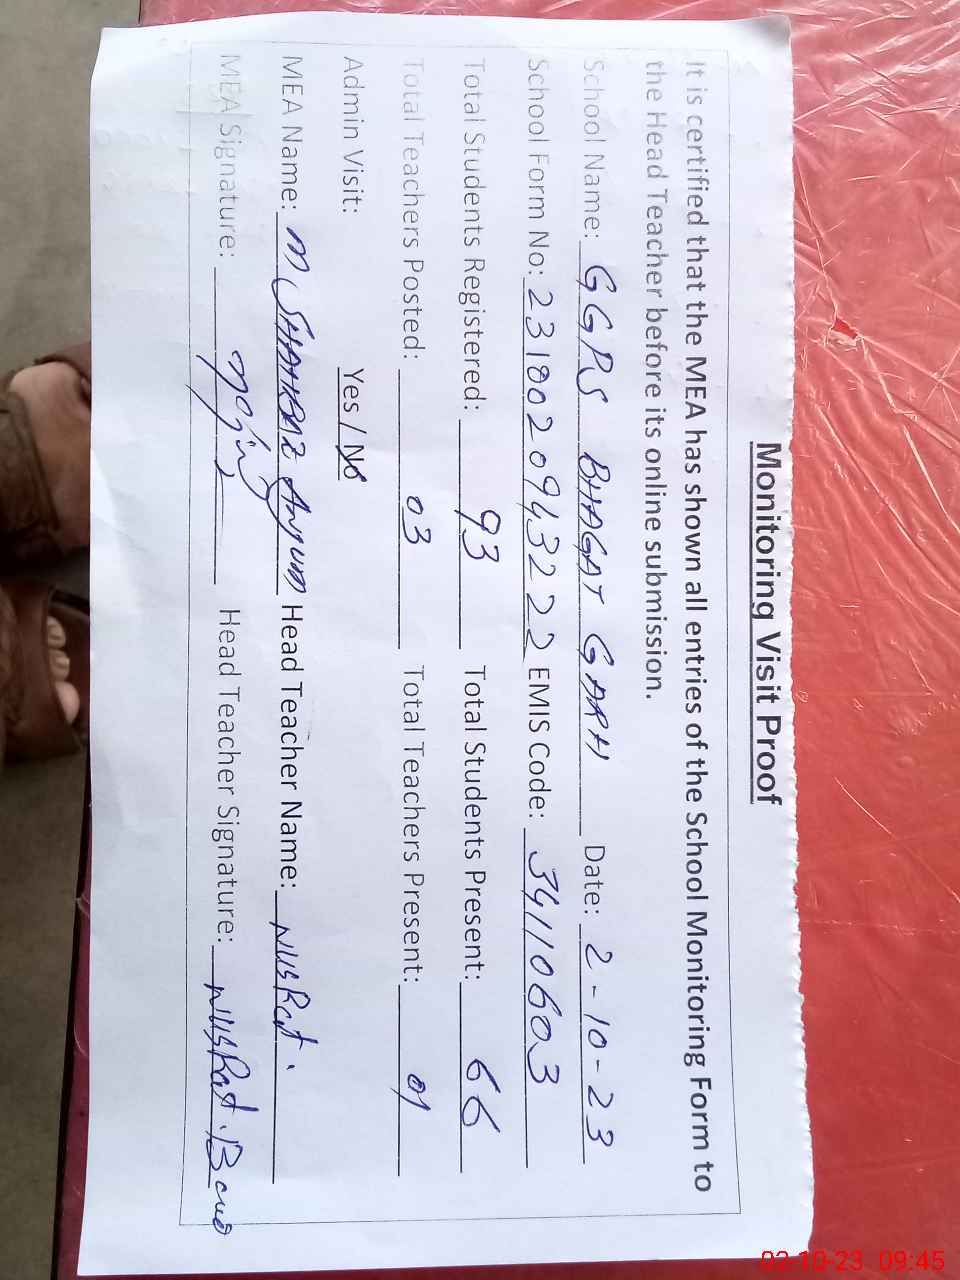 Monitoring Visit Proof
It is certified that the MEA has shown all entries of the School Monitoring Form to
the Head Teacher before its online submission.
School Name: GGPS BHAGAT GARH Date: 2-10-23
School Form No: 231002094322 EMIS Code: 34110603
Total Students Registered: 93 Total Students Present: 66
Total Teachers Posted: 03 Total Teachers Present: 01
Admin Visit: Yes / No
MEA Name: M SHAHBAZ Anyum Head Teacher Name: Nusrat.
MEA Signature: Head Teacher Signature: Nusrat Bano
02-10-23 09:45